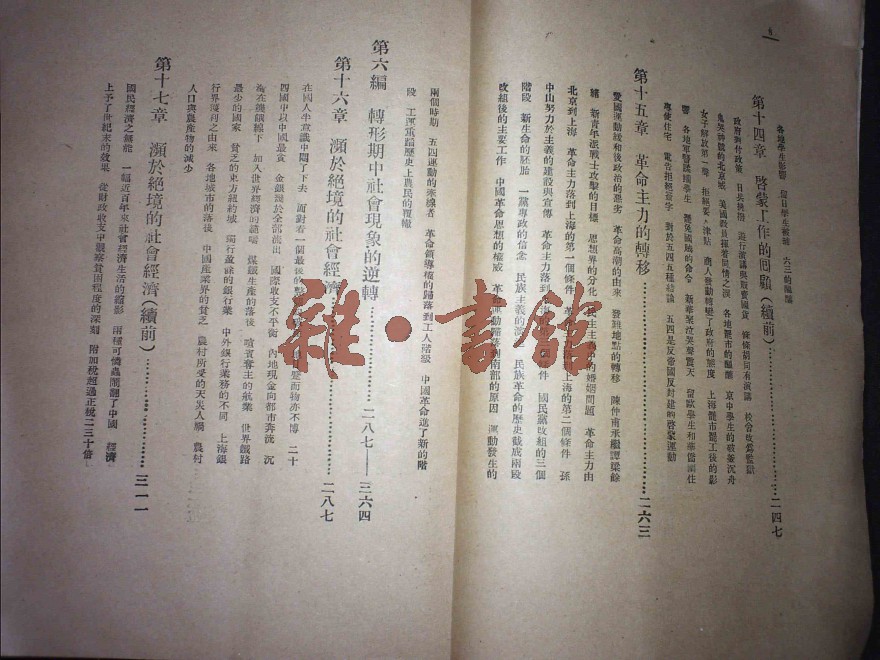 6
各地學生影響 留日學生被捕 六三的醞釀
第十四章 啓蒙工作的囘顧(續前)……二四七
政府對付政策 日兵示威 遊行演講與販賣國貨 條條胡同有演講 校舍改爲監獄
鬼哭神號的北京城 美國教員揮着同情之淚 各地罷市的醞釀 京中學生的破釜沉舟
女子解放第一聲 商人發動轉變了政府的態度 上海罷市罷工後的影
響 各地軍警蹂躪學生 罷免國賊的命令 新華門泣哭聲震天 留歐學生和華僑圍住
專使住宅 電告拒絕簽字 對於五四五種結論 五四是反帝國反封建的啓蒙運動
第十五章 革命主力的轉移……二六三
愛國運動緩和後政治的惡劣 革命高潮的由來 發難地點的轉移 陳仲甫承繼譚梁餘
緒 新青年派戰士攻擊的目標 思想界的分化 民主主義中的婚姻問題 革命主力由
北京到上海 革命主力落到上海的第一個條件 革命主力落到上海的第二個條件 孫
中山努力於主義的建設與宣傳 革命主力落到上海的 條件 國民黨改組的三個
階段 新生命的胚胎 一黨專政的信念 民族主義的演 民族革命的歷史截成兩段
改組後的主要工作 中國革命思想的權威 革命運動歸落到南部的原因 運動發生的
兩個時期 五四運動的承繼者 革命領導權的歸落到工人階級 中國革命進了新的階
段 工運重蹈歷史上農民的覆轍
第六編 轉形期中社會現象的逆轉……二八七——三六四
第十六章 瀕於絕境的社會經濟……二八七
在國人半意識中悶了下去 面對着一個最後的 而物亦不博 二十
四國中以中國最貧 金銀幾於全部流出 國際收支不平衡 內地現金向都市奔流 沉
淪在飢餓線下 加入世界經濟的範疇 煤鐵生產的落後 噴賓奪主的航業 世界鐵路
最少的國家 貧乏的東方紐約城 獨行盈餘的銀行業 中外銀行業務的不同 上海銀
行界獲利之由來 各地城市的落後 中國產業界的貧乏 農村所受的天災人禍 農村
人口與農產物的減少
第十七章 瀕於絕境的社會經濟(續前)……三一一
國民經濟之無能 一幅近百年來社會經濟生活的縮影 兩種可憐蟲鬧翻了中國 經濟
上予了世紀末的效果 從財政收支中觀察貧困程度的深刻 附加稅超過正稅二三十倍
雜·書館